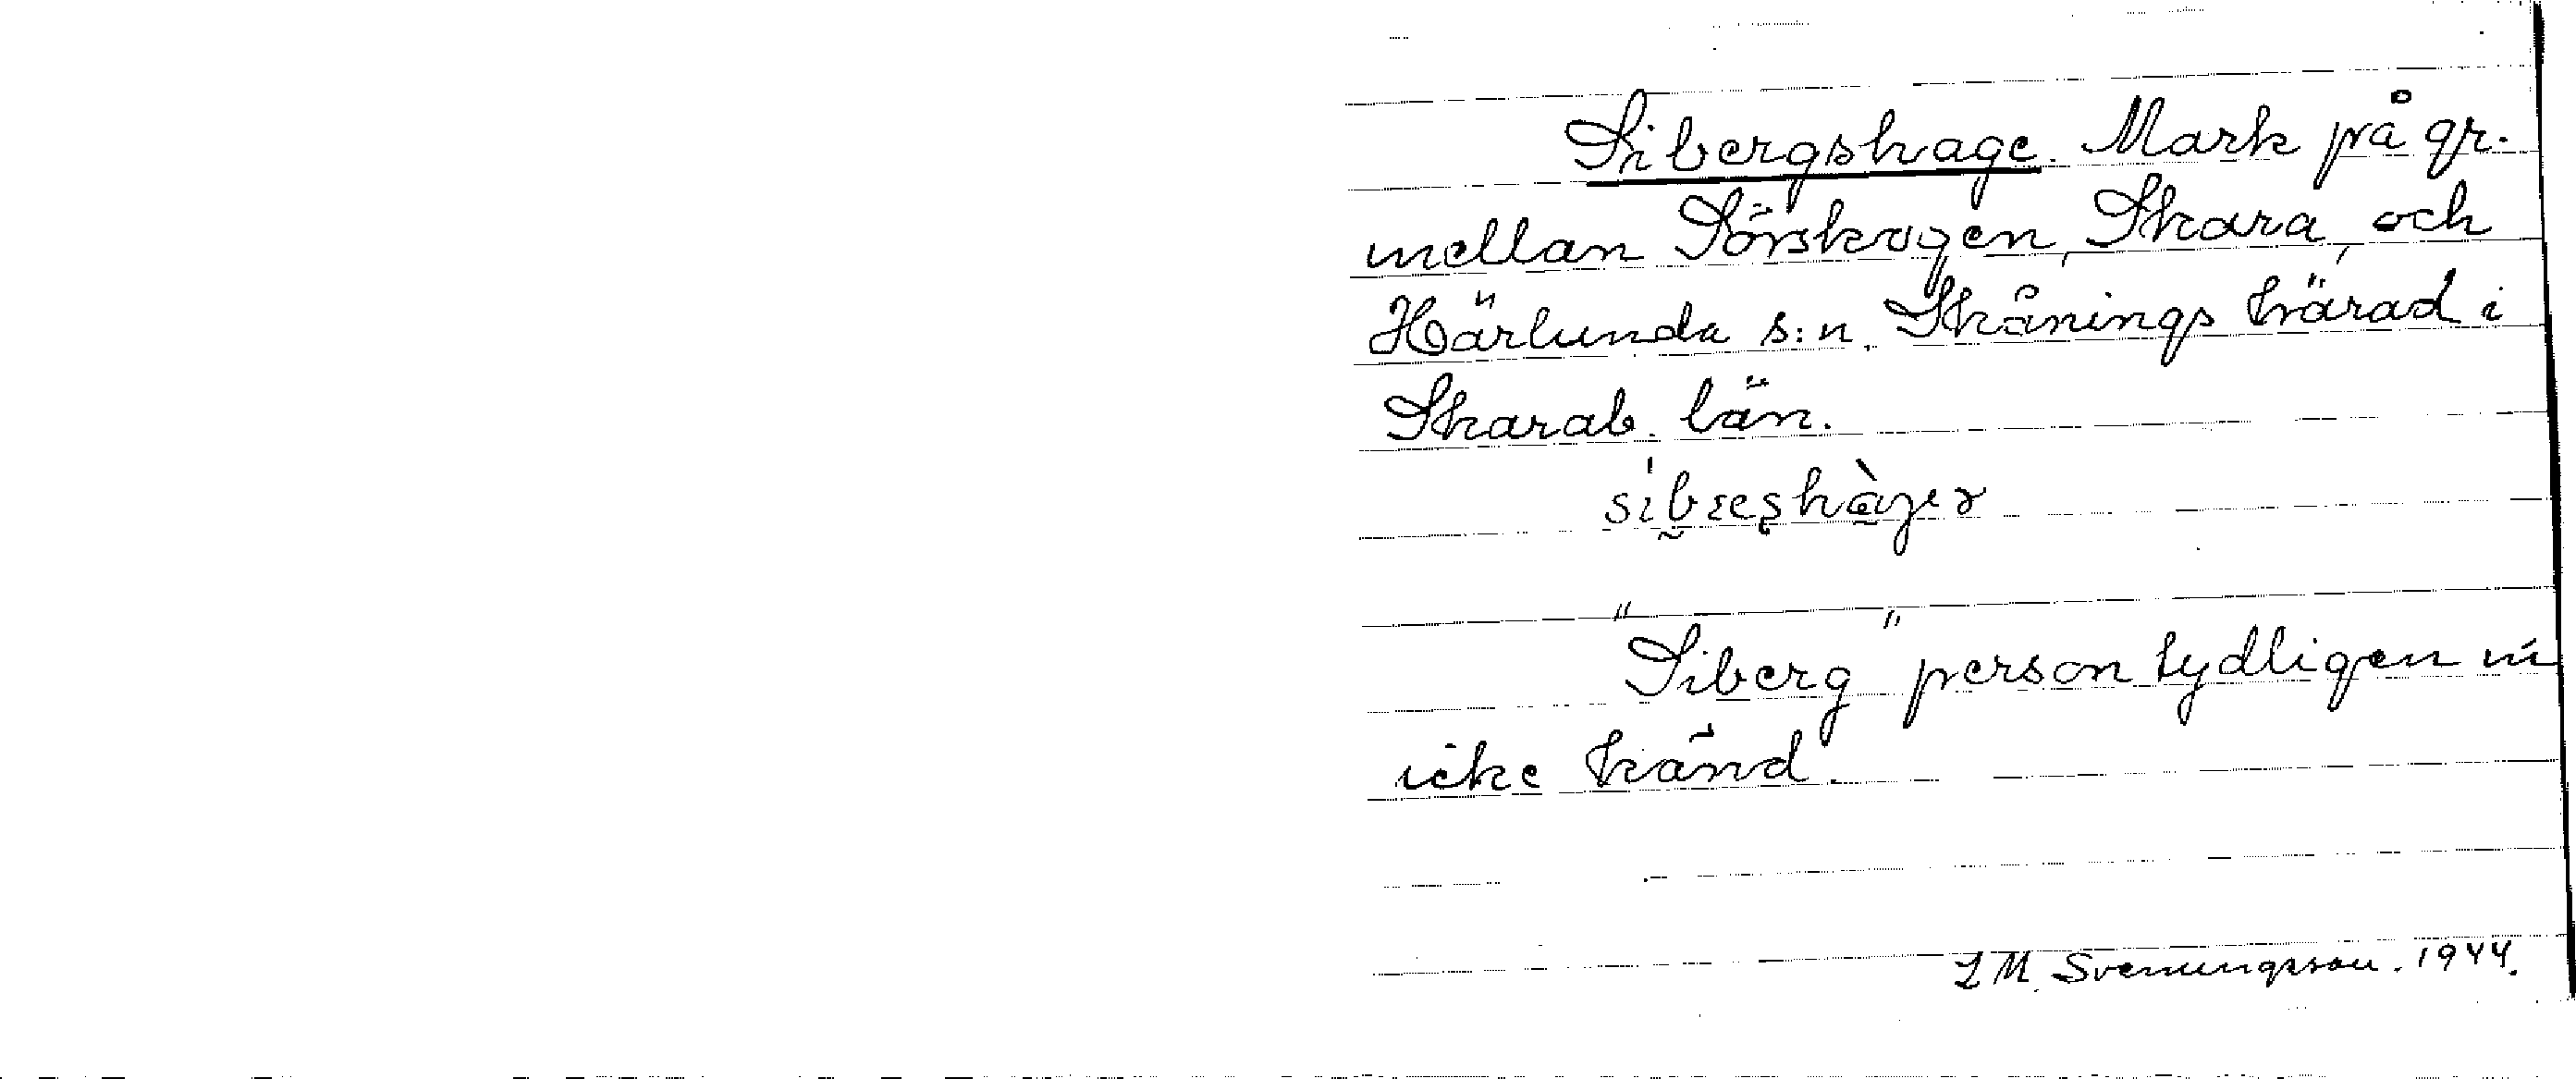 Sibergshage. Mark på gr.
mellan Sörskogen, Skara, och
Härlunda s:n, Skånings härad i
Skarab. län.
"Siberg" person tydligen nu
icke känd.
L M Svenungsson. 1944.